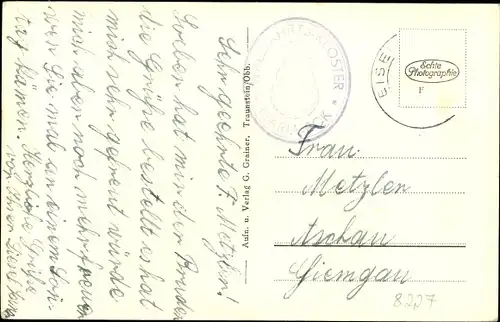 Sehr geehrte F. Metzlen!
Soeben hat mir der Bruder
die Grüße bestellt es hat
mich sehr gefreut würde
mich aber noch mehr freuen
wen Sie mal an einem Son-
tag kämen. Herzl. Grüße
von Ihrer
Aufn. u. Verlag G. Grainer, Traunstein/Obb.
KLOSTER
EISE
Echte
Photographie
F
Frau
Metzlen
Aschau
Giemgau
8227